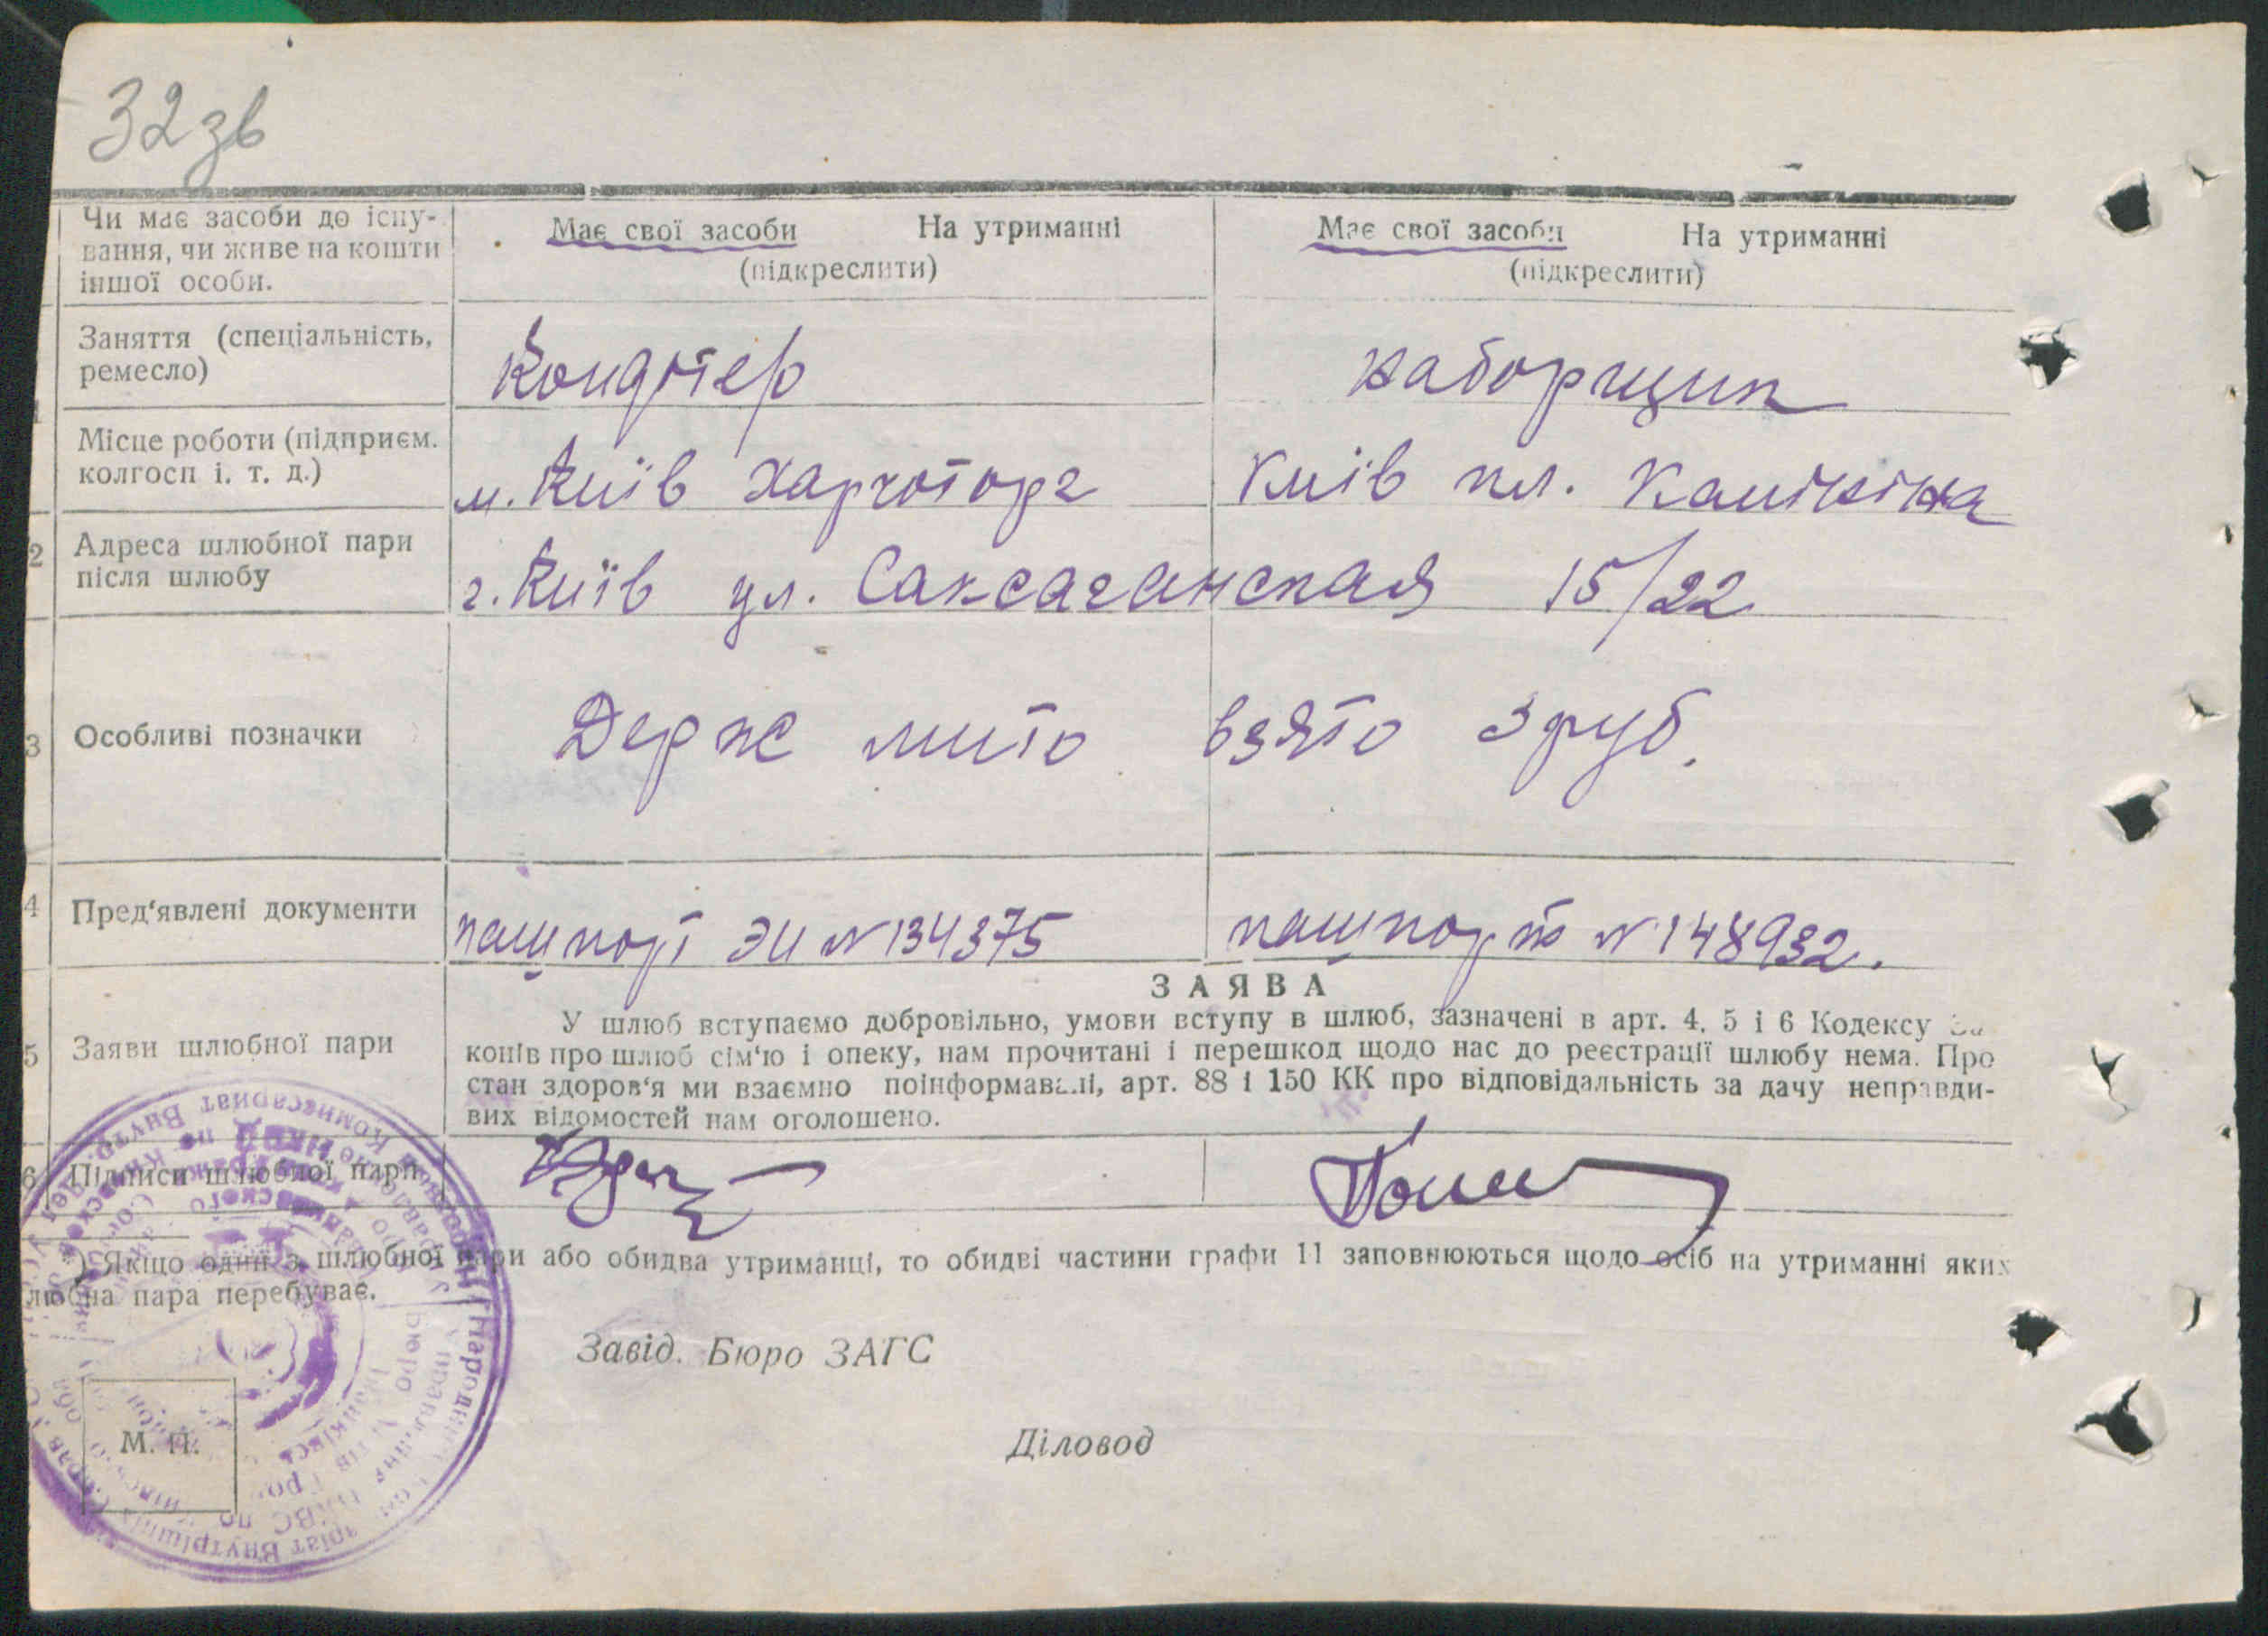 32зв
Чи має засоби до існу-
вання, чи живе на кошти
іншої особи.
Має свої засоби На утриманні
(підкреслити)
Має свої засоби На утриманні
(підкреслити)
Заняття (спеціальність,
ремесло)
Кондітер
наборщик
Місце роботи (підприєм.
колгосп і. т. д.)
м. Київ Харчоторг
Київ пл. Калініна
2 Адреса шлюбної пари
після шлюбу
г. Київ ул. Саксаганская 15/22
3 Особливі позначки
Держ мито взято 3 руб.
4 Пред'явлені документи
пашпорт ЭИ N 134375
пашпорт N 148932.
5 Заяви шлюбної пари
ЗАЯВА
У шлюб вступаємо добровільно, умови вступу в шлюб, зазначені в арт. 4, 5 і 6 Кодексу За
конів про шлюб сім'ю і опеку, нам прочитані і перешкод щодо нас до реєстрації шлюбу нема. Про
стан здоров'я ми взаємно поінформавалі, арт. 88 і 150 КК про відповідальність за дачу неправди-
вих відомостей нам оголошено.
6 Підписи шлюбної пари
) Якщо один з шлюбної пари або обидва утриманці, то обидві частини графи 11 заповнюються щодо осіб на утриманні яких
любна пара перебуває.
Завід. Бюро ЗАГС
Діловод
М. П.